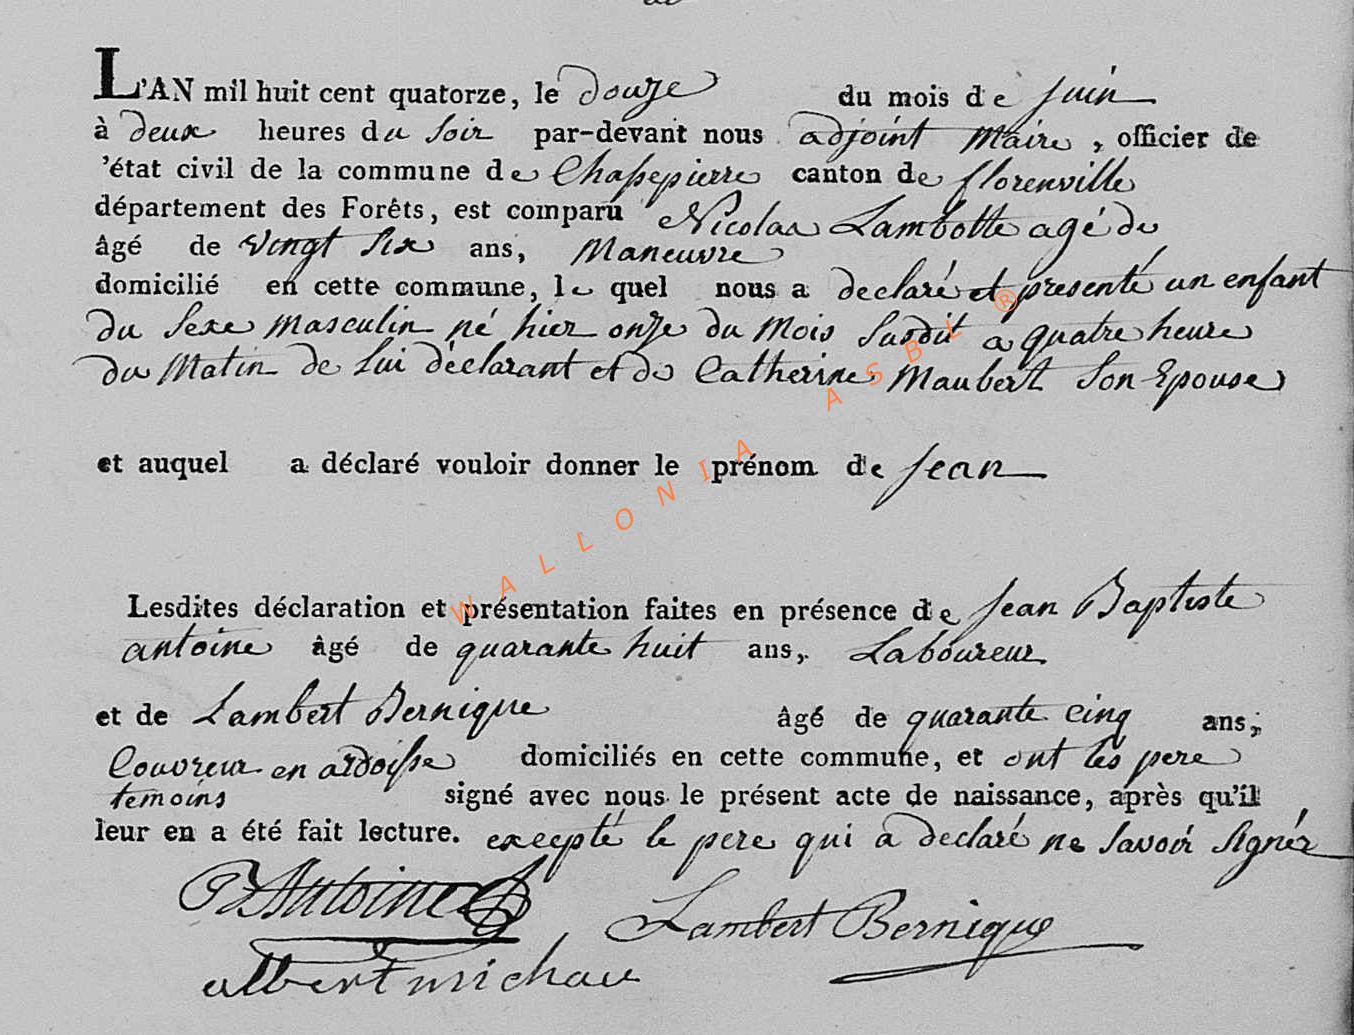 L'AN mil huit cent quatorze, le douze du mois de juin
à deux heures du soir par-devant nous adjoint Maire, officier de
'état civil de la commune de Chassepierre canton de florenville
département des Forêts, est comparu Nicolas Lambotte agé de
âgé de vingt six ans, Maneuvre
domicilié en cette commune, le quel nous a declaré et presenté un enfant
du sexe masculin né hier onze du mois susdit a quatre heure
du Matin de lui déclarant et de Catherine Maubert son Epouse
et auquel a déclaré vouloir donner le prénom de jean
Lesdites déclaration et présentation faites en présence de jean Baptiste
antoine âgé de quarante huit ans, Laboureur
et de Lambert Bernique âgé de quarante cinq ans,
Couvreur en ardoisse domiciliés en cette commune, et ont les pere
temoins signé avec nous le présent acte de naissance, après qu'il
leur en a été fait lecture. excepté le pere qui a declaré ne savoir signér
Antoine
Lambert Bernique
albert michau
WALLONIA ASBL ®